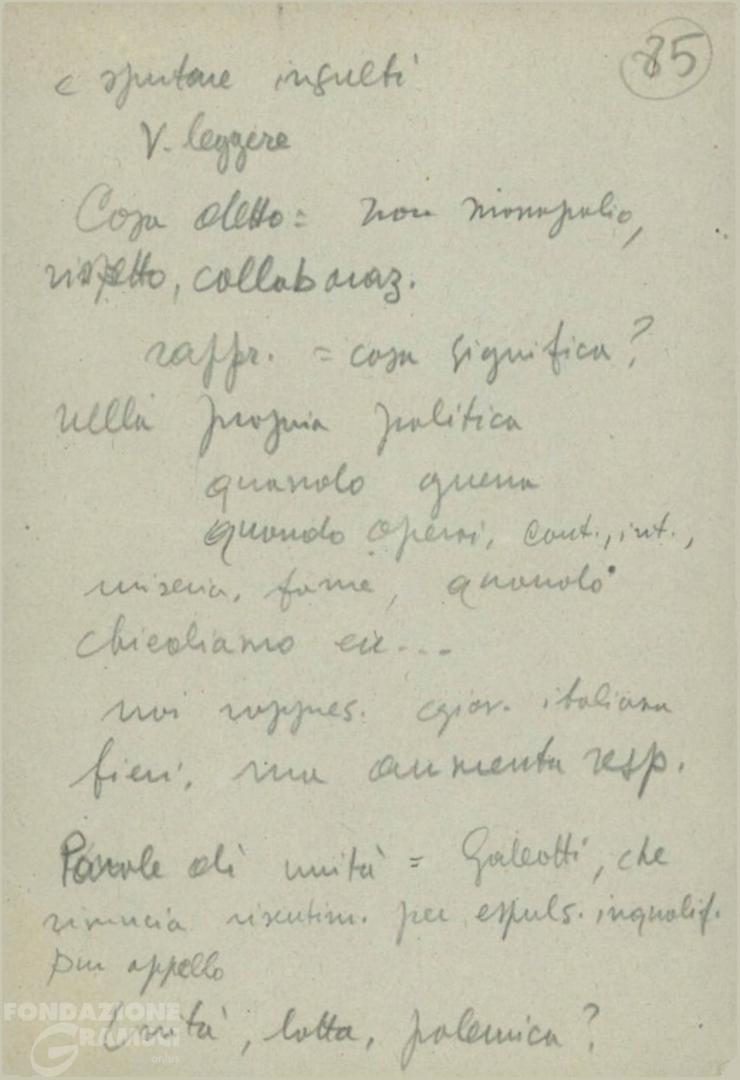 85
e sputare insulti
V. leggere
Cosa detto = non monopolio,
rispetto, collaboraz.
rappr. = cosa significa?
nella propria politica
quando guerra
quando operai, cont., int.,
miseria, fame, quando
chiediamo ecc...
noi rappres. giov. italiana
fieri, ma aumenta resp.
Parole di unità = Galeotti, che
rinuncia risentim. per espuls. inqualif.
Suo appello
Unità, lotta, polemica?
FONDAZIONE
GRAMSCI
onlus